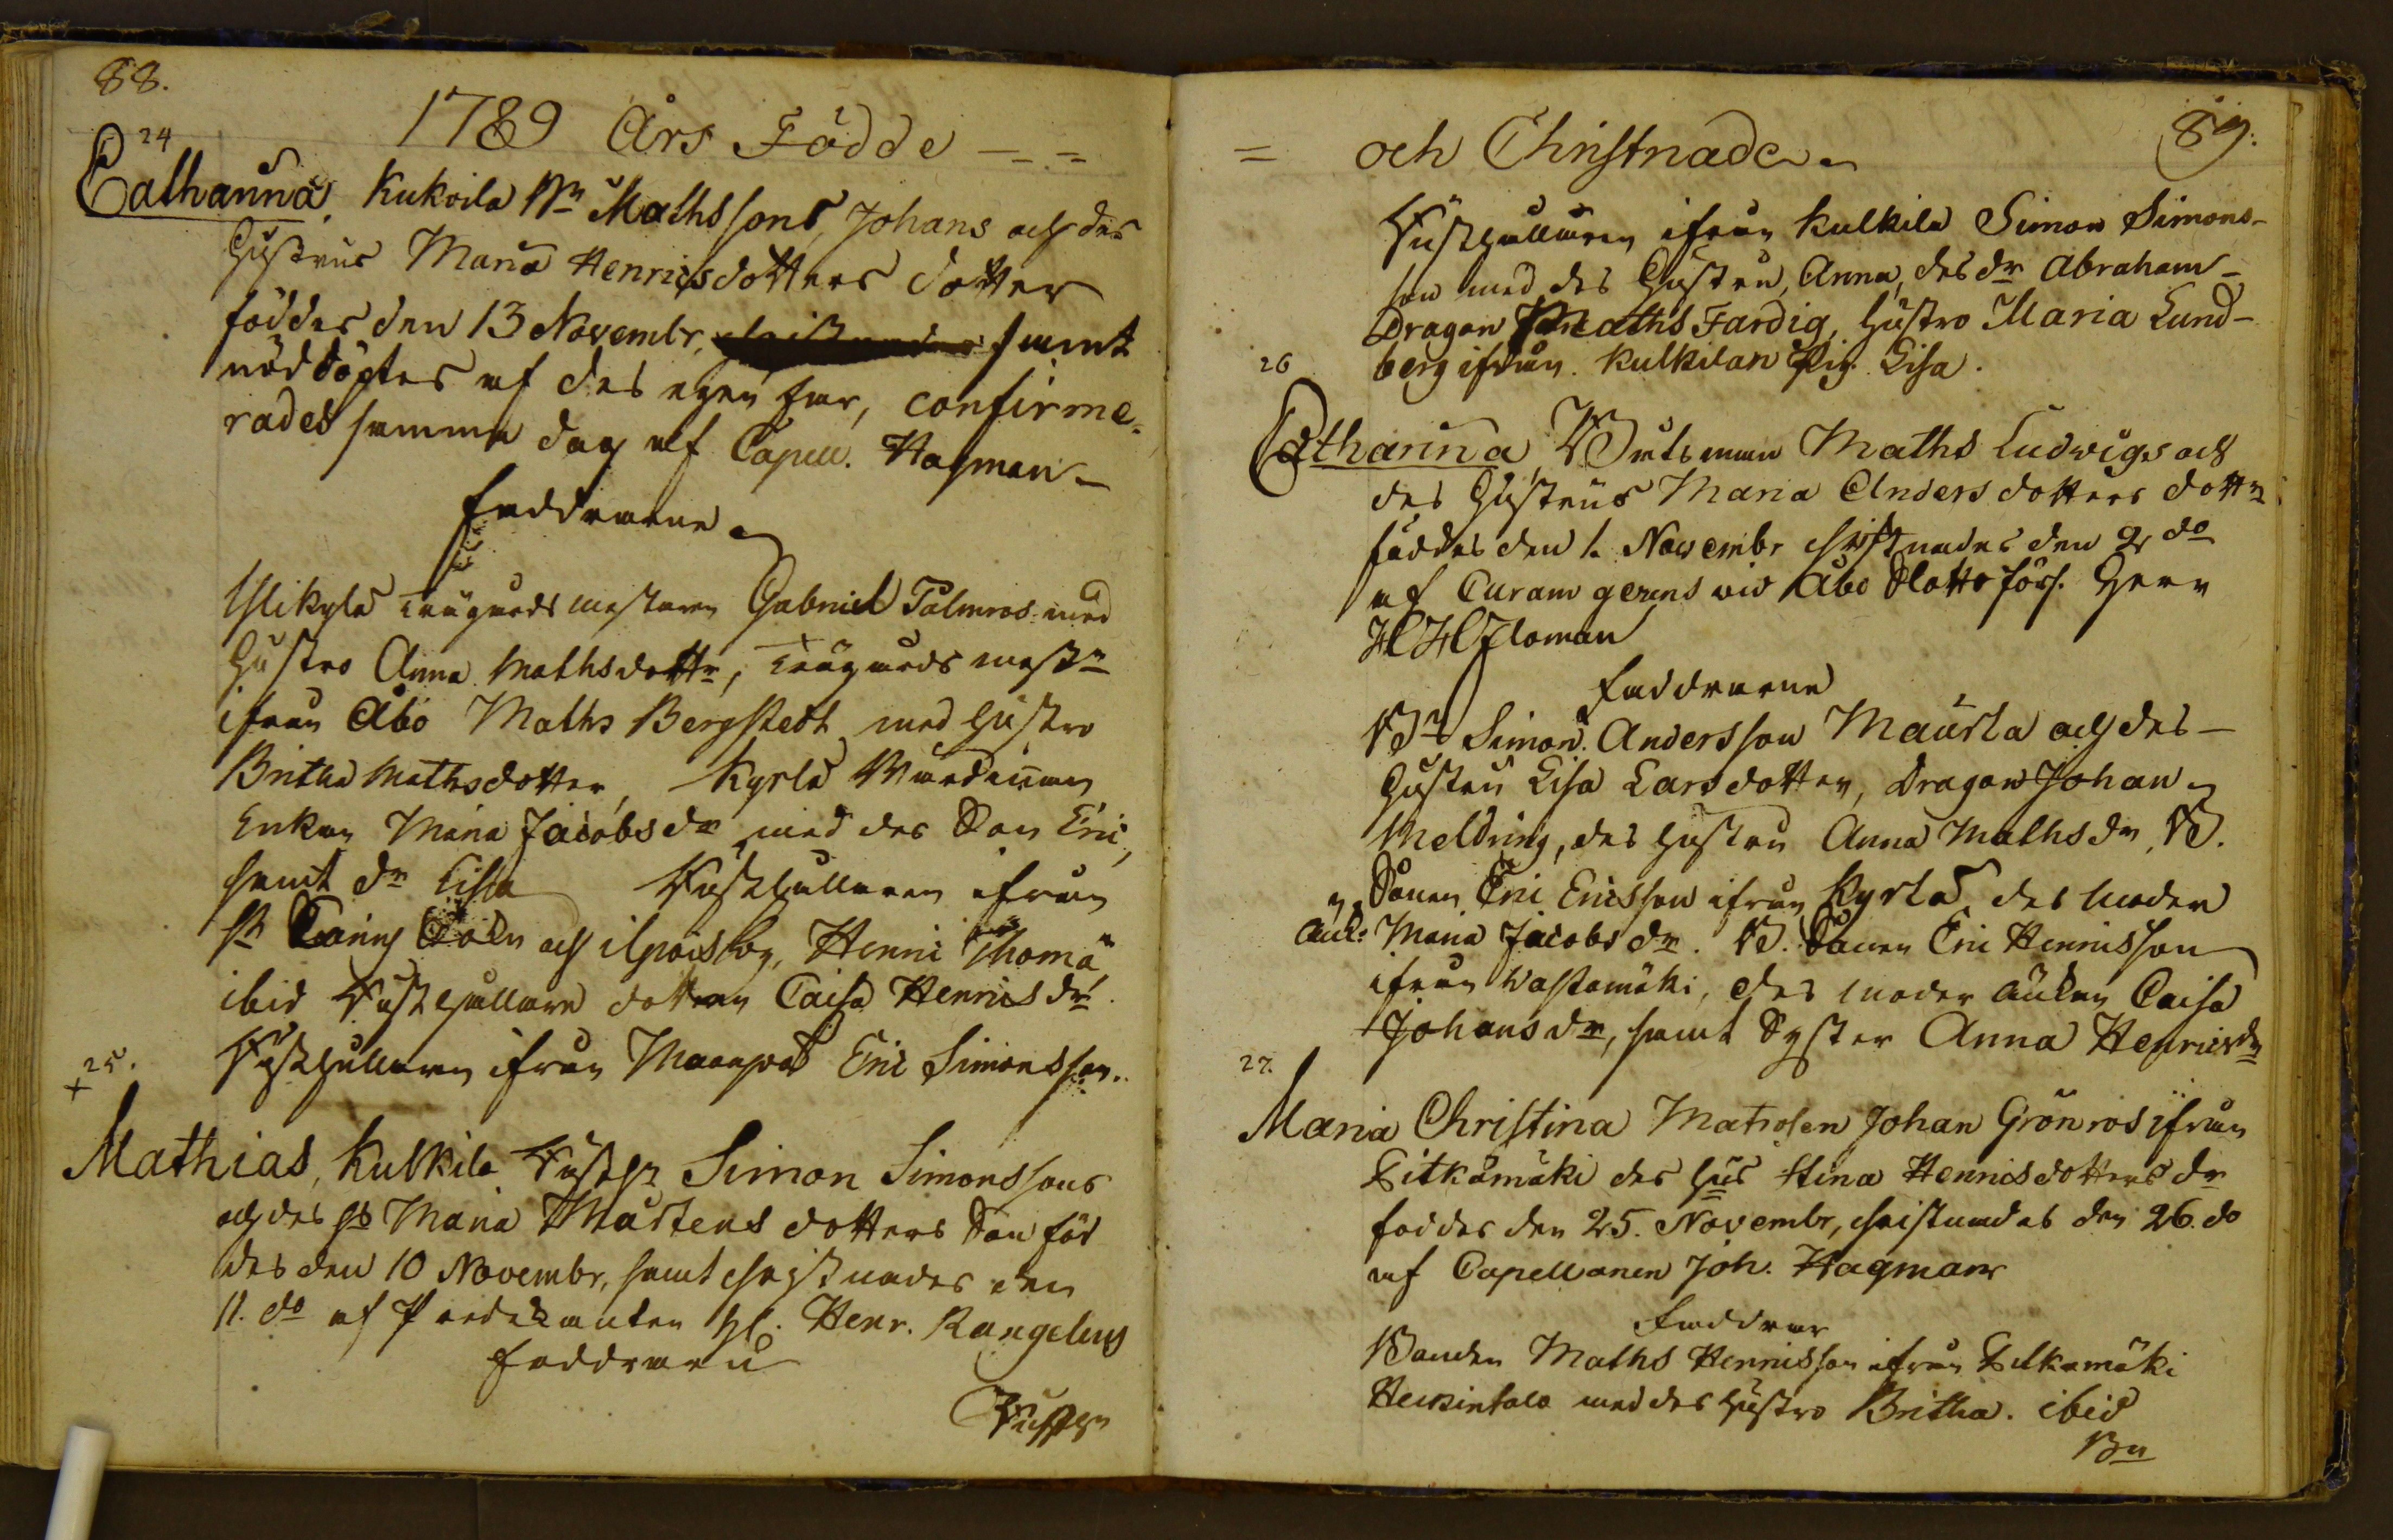 88.
1789 Års Födde
24
Catharina, Kukoila Bn Mathssons, Johans och des
Hustrus Maria Henricsdotters dotter
föddes den 13 Novembr, samt
nöddöptes af des egen far, confirme-
rades samma dag af Capell. Hagman
Faddrarne
Ylikylä trägårdsmästaren Gabriel Palmros med
Hustro Anna Mathsdottr, Trägårds mästr
ifrån Åbo Maths Bergstedt med Hustro
Britha Mathsdotter, Kyrlä Wärdinnan
Enkan Maria Jacobsdr med des Son Eric,
samt dr Lisa Rusthållaren ifrån
och Henric Thomæ
ibid Rusthållare dottren Caisa Henricsdr.
Rusthållaren ifrån Eric Simonsson.
25.
+
Mathias, Kulkila Rusth Simon Simonssons
och des H Maria Mårtens dotters Son föd
des den 10 Novembr, samt christnades den
11. do af Predikanten Hl. Henr. Rangelius
Faddrarne
Rusth
89.
och Christnade
Rusthållaren ifrån Kulkila Simon Simons-
son med des Hustru, Anna, des dr Abraham
Dragon Maths Fardig, Hustro Maria Lund-
berg ifrån Kulkilan Pig. Lisa.
26
Catharina, Båtsman Maths Ludwigs och
des Hustrus Maria Anders dotters dottr
föddes den 1. Novembr christnades den 2 do
af Curam gerens wid Åbo Slotts förs. Herr
Floman
Faddrarne
Bn Simon Andersson Maurla och des
Hustru Lisa Larsdotter, Dragon Johan
Meldring, des Hustru Anna Mathsdr, B.
Sonen Eric Ericsson ifrån Kyrlä des Moder
Änk: Maria Jacobsdr. B. Sonen Eric Henricsson
ifrån Wastamäki, des moder änkan Caisa
Johansdr, samt Syster Anna Henricsdr
27.
Maria Christina Matrosen Johan Grönros ifrån
Pitkämäki des Hus Stina Henricsdotters dr
foddes den 25. Novembr, christnades den 26. do
af Capellanen Joh. Hagman
Faddrar
Bonden Maths Henricsson ifrån Pitkamäki
Heikintalo med des Hustro Britha. ibid
Bn